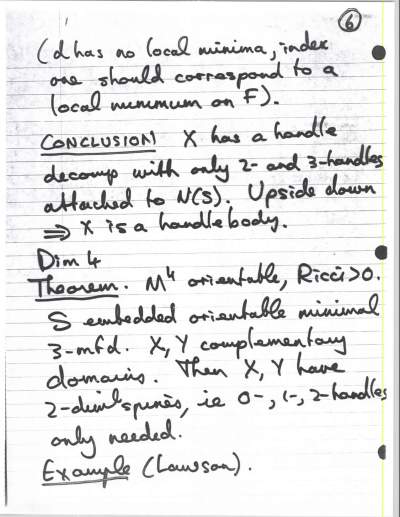 6
(d has no local minima, index
one should correspond to a
local minimum on F).
CONCLUSION X has a handle
decomp with only 2- and 3-handles
attached to N(S). Upside down
⇒ X is a handlebody.
Dim 4
Theorem. M⁴ orientable, Ricci>0.
S embedded orientable minimal
3-mfd. X, Y complementary
domains. Then X, Y have
2-diml spines, ie 0-, 1-, 2-handles
only needed.
Example (Lawson).